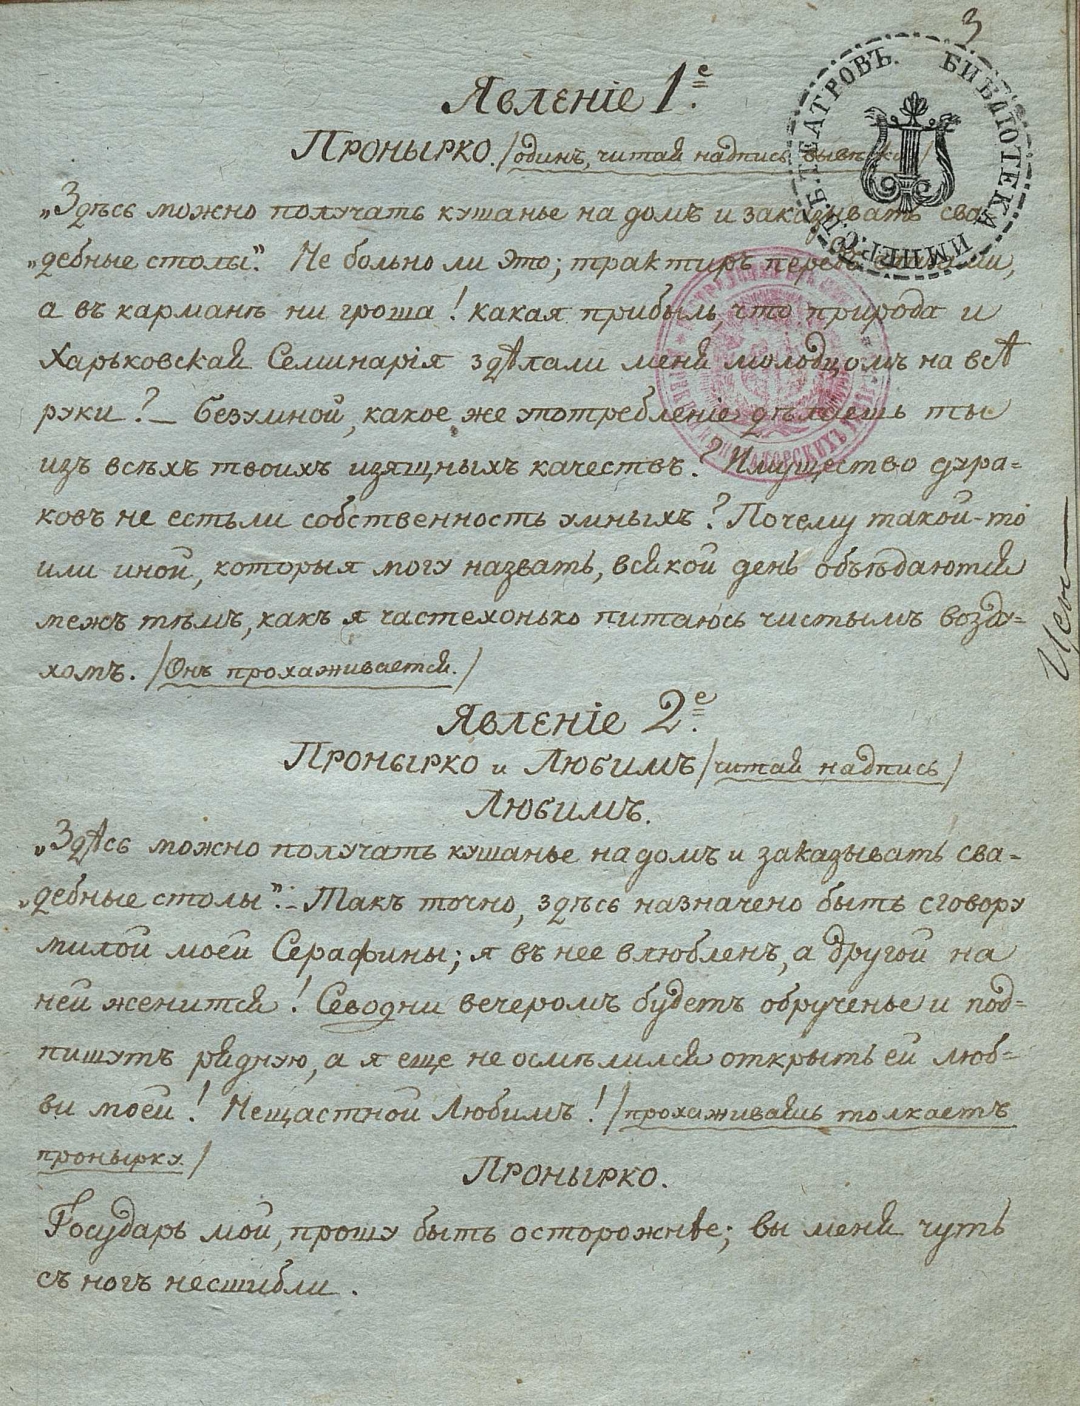 3
Явленіе 1е.
Пронырко. /одинъ, читая надпись вывѣски/
„Здѣсь можно получать кушанье на домъ и заказывать сва-
„дебные столы“. Не больно ли это; трактиръ передъ
а въ карманѣ ни гроша! какая прибыль, что природа и
Харьковская Семинарія здѣлали меня молодцомъ на всѣ
руки? — Безумной, какое же употребленіе дѣлаешь ты
изъ всѣхъ твоихъ изящныхъ качествъ? Имущество дура=
ковъ не естьли собственность умныхъ? Почему такой-то
или иной, которыя могу назвать, всякой день объѣдаются
межъ тѣмъ, какъ я частехонько питаюсь чистымъ возду-
хомъ. /Онъ прохаживается./
Явленіе 2е.
Пронырко и Любимъ /читая надпись/
Любимъ.
„Здѣсь можно получать кушанье на домъ и заказывать сва-
„дебные столы“. — Такъ точно, здѣсь назначено быть сговору
милой моей Серафины; я въ нее влюбленъ, а другой на
ней женится! Севодни вечеромъ будетъ обрученье и под=
пишутъ рядную, а я еще не осмѣлился открыть ей люб=
ви моей! Нещастной Любимъ! /прохаживаясь толкаетъ
пронырку./
Пронырко.
Государь мой, прошу быть осторожнѣе; вы меня чуть
съ ногъ несшибли.
БИБЛІОТЕКА ИМПЕР. С.П.Б. ТЕАТРОВЪ.